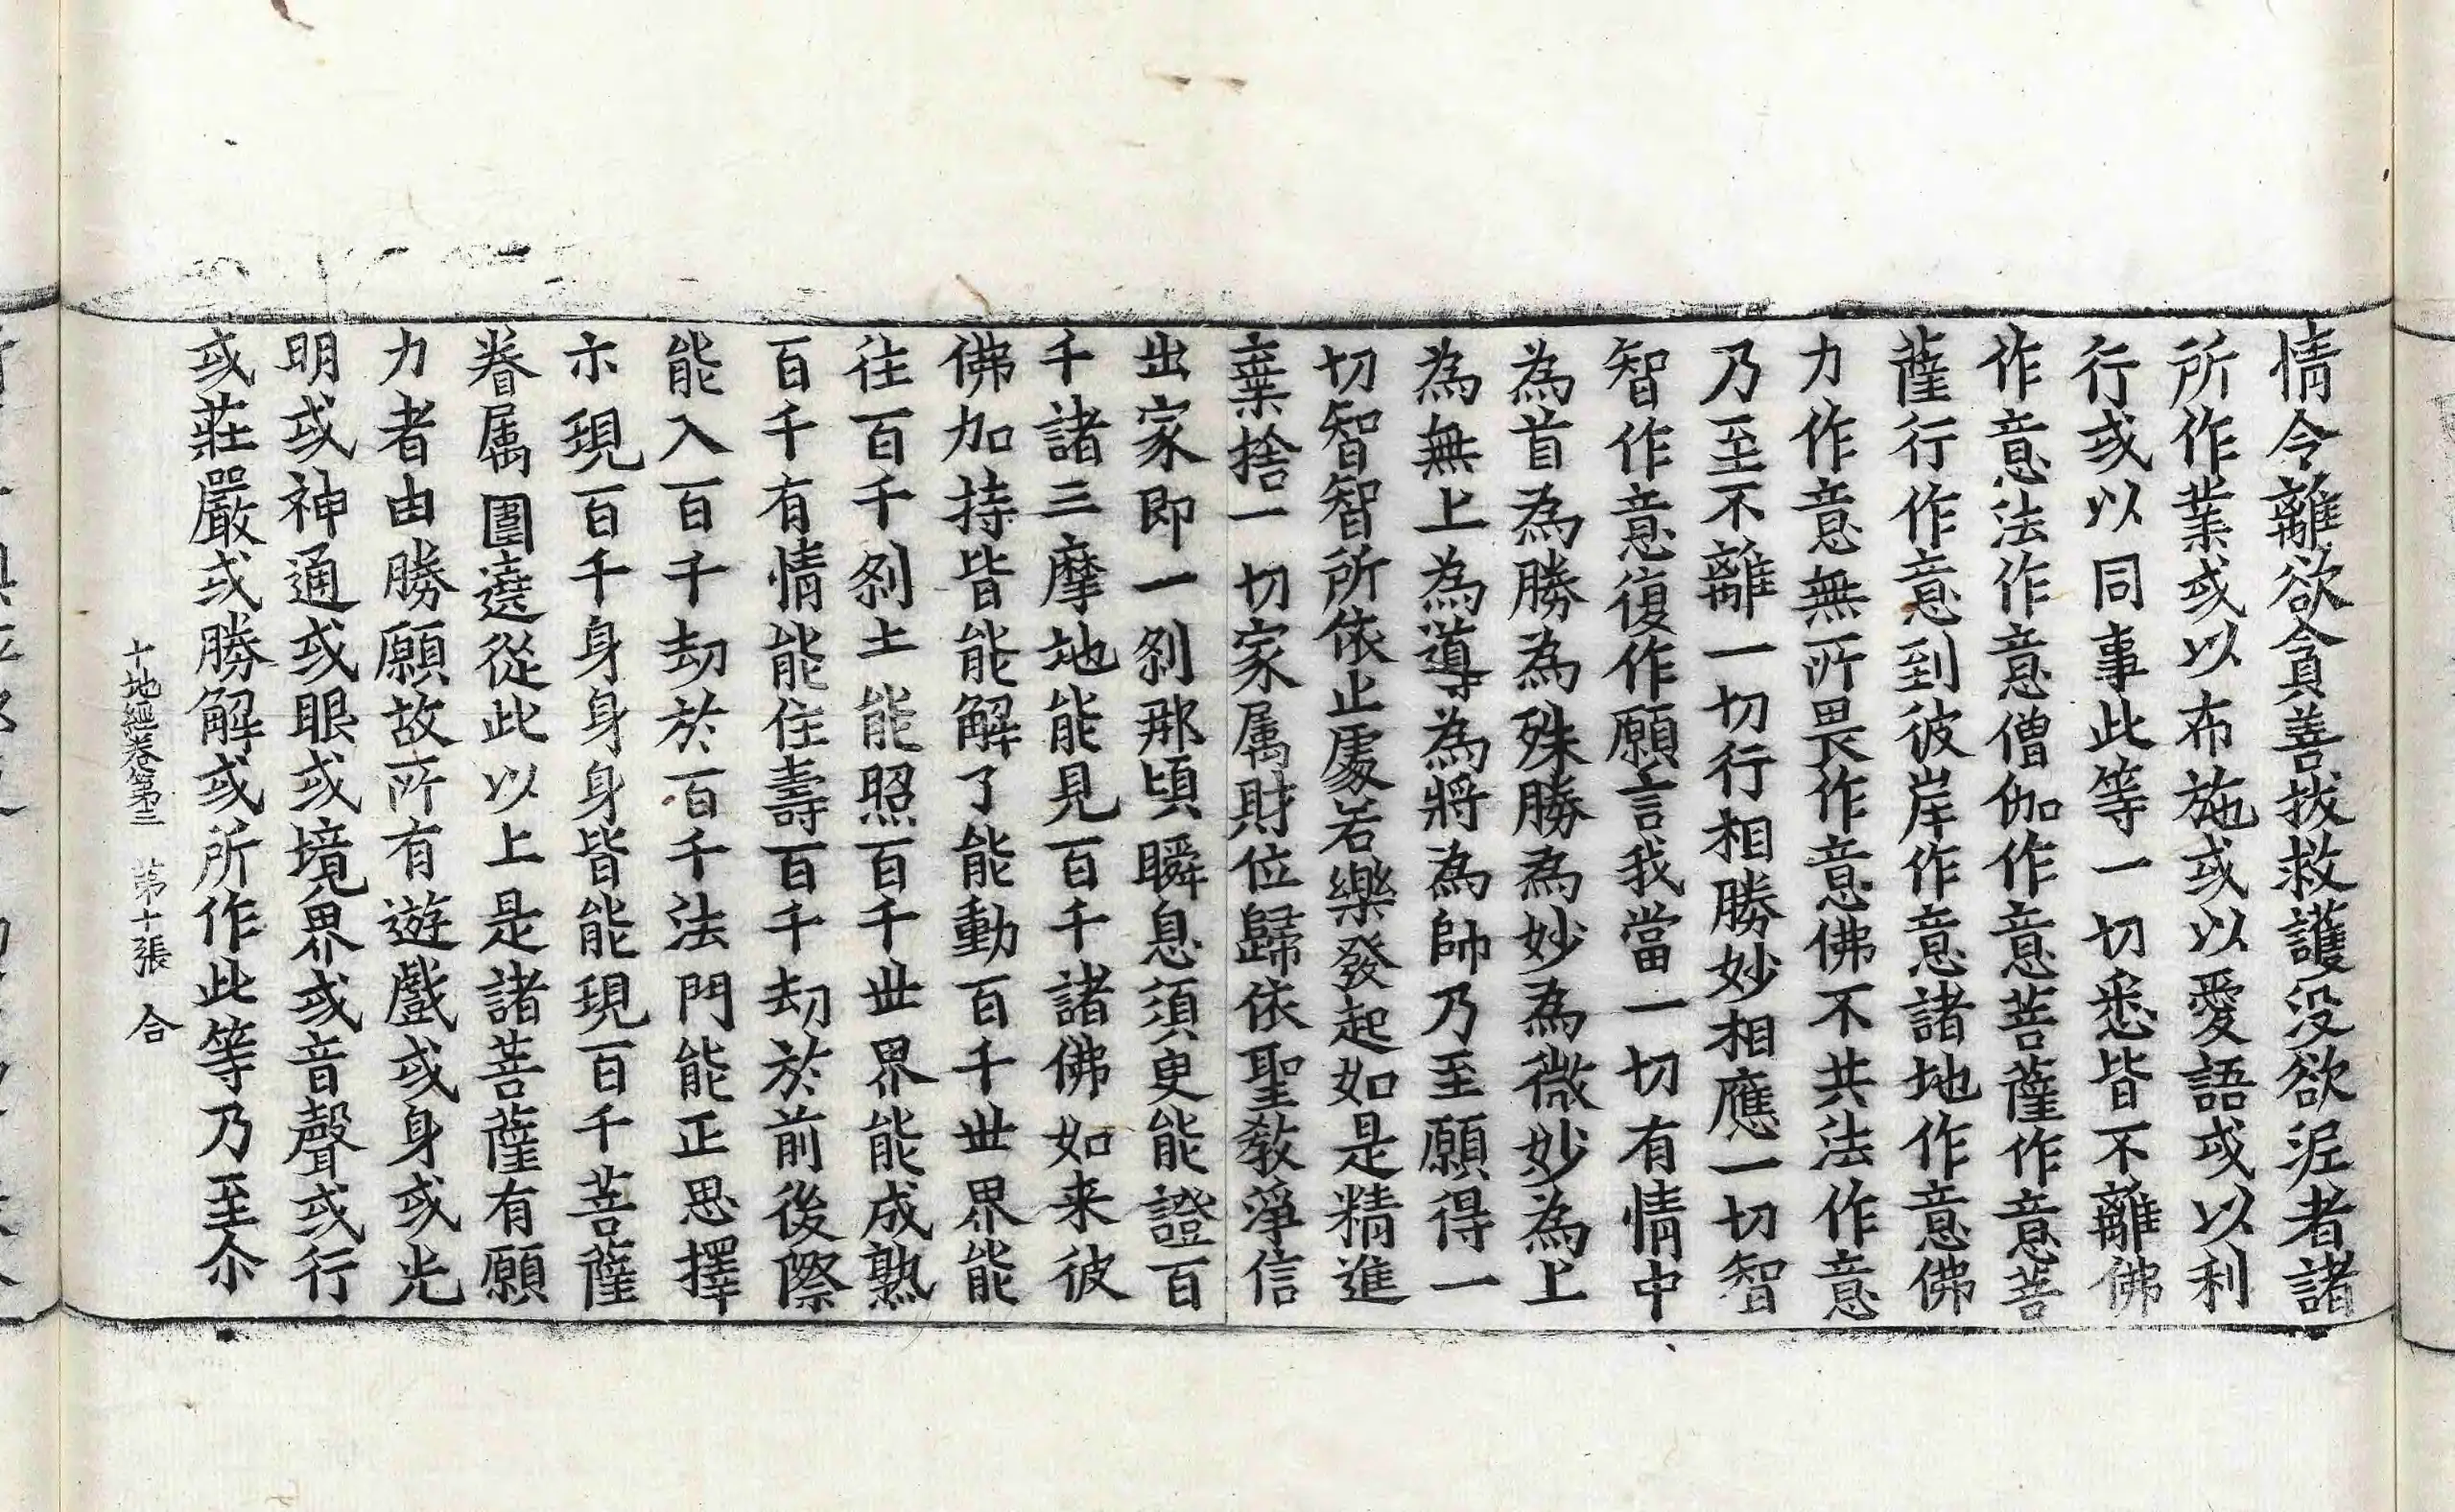 情令離欲貪善拔救護没欲泥者諸
所作業或以布施或以愛語或以利
行或以同事此等一切悉皆不離佛
作意法作意僧伽作意菩薩作意菩
薩行作意到彼岸作意諸地作意佛
力作意無所畏作意佛不共法作意
乃至不離一切行相勝妙相應一切智
智作意復作願言我當一切有情中
為首為勝為殊勝為妙為微妙為上
為無上為導為將為帥乃至願得一
切智智所依止處若樂發起如是精進
棄捨一切家属財位歸依聖教淨信
出家即一刹那頃瞬息須臾能證百
千諸三摩地能見百千諸佛如来彼
佛加持皆能解了能動百千世界能
往百千刹土能照百千世界能成熟
百千有情能住壽百千劫於前後際
能入百千劫於百千法門能正思擇
示現百千身身身皆能現百千菩薩
眷属圍遶從此以上是諸菩薩有願
力者由勝願故所有遊戲或身或光
明或神通或眼或境界或音聲或行
或莊嚴或勝解或所作此等乃至尒
十地經卷第三　第十張　合